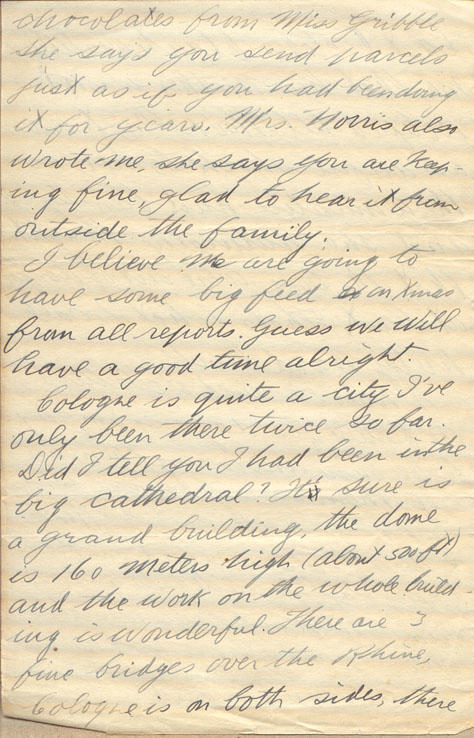 chocolates from Miss Gribble
she says you send parcels
just as if you had been doing
it for years. Mrs. Norris also
wrote me, she says you are keep-
ing fine, glad to hear it from
outside the family.
I believe we are going to
have some big feed on Xmas
from all reports. Guess we will
have a good time alright.
Cologne is quite a city I've
only been there twice so far.
Did I tell you I had been in the
big cathedral? It sure is
a grand building, the dome
is 160 meters high (about 500 ft)
and the work on the whole build-
ing is wonderful. There are 3
fine bridges over the Rhine,
Cologne is on both sides, there